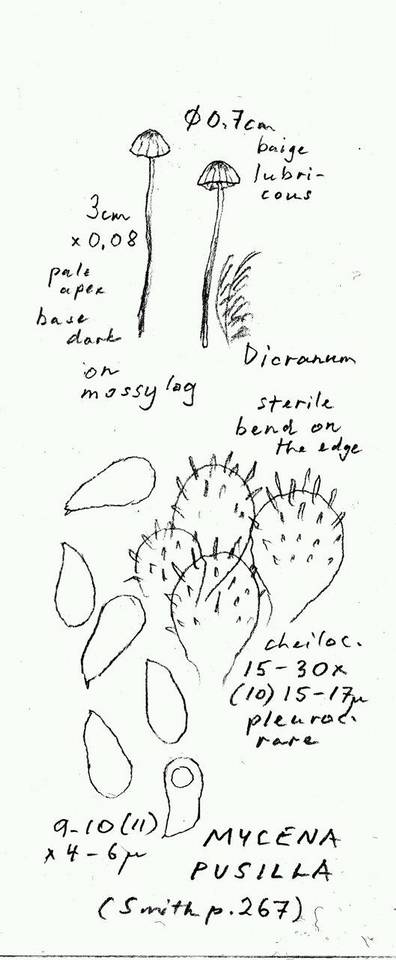 Ø 0.7cm
baige
lubri-
cous
3cm
x 0,08
pale
apex
base
dark
on
mossy log
Dicranum
sterile
bend on
the edge
cheiloc.
15-30x
(10) 15-17µ
pleuroc.
rare
9-10(11)
x 4-6µ
MYCENA
PUSILLA
(Smith p.267)